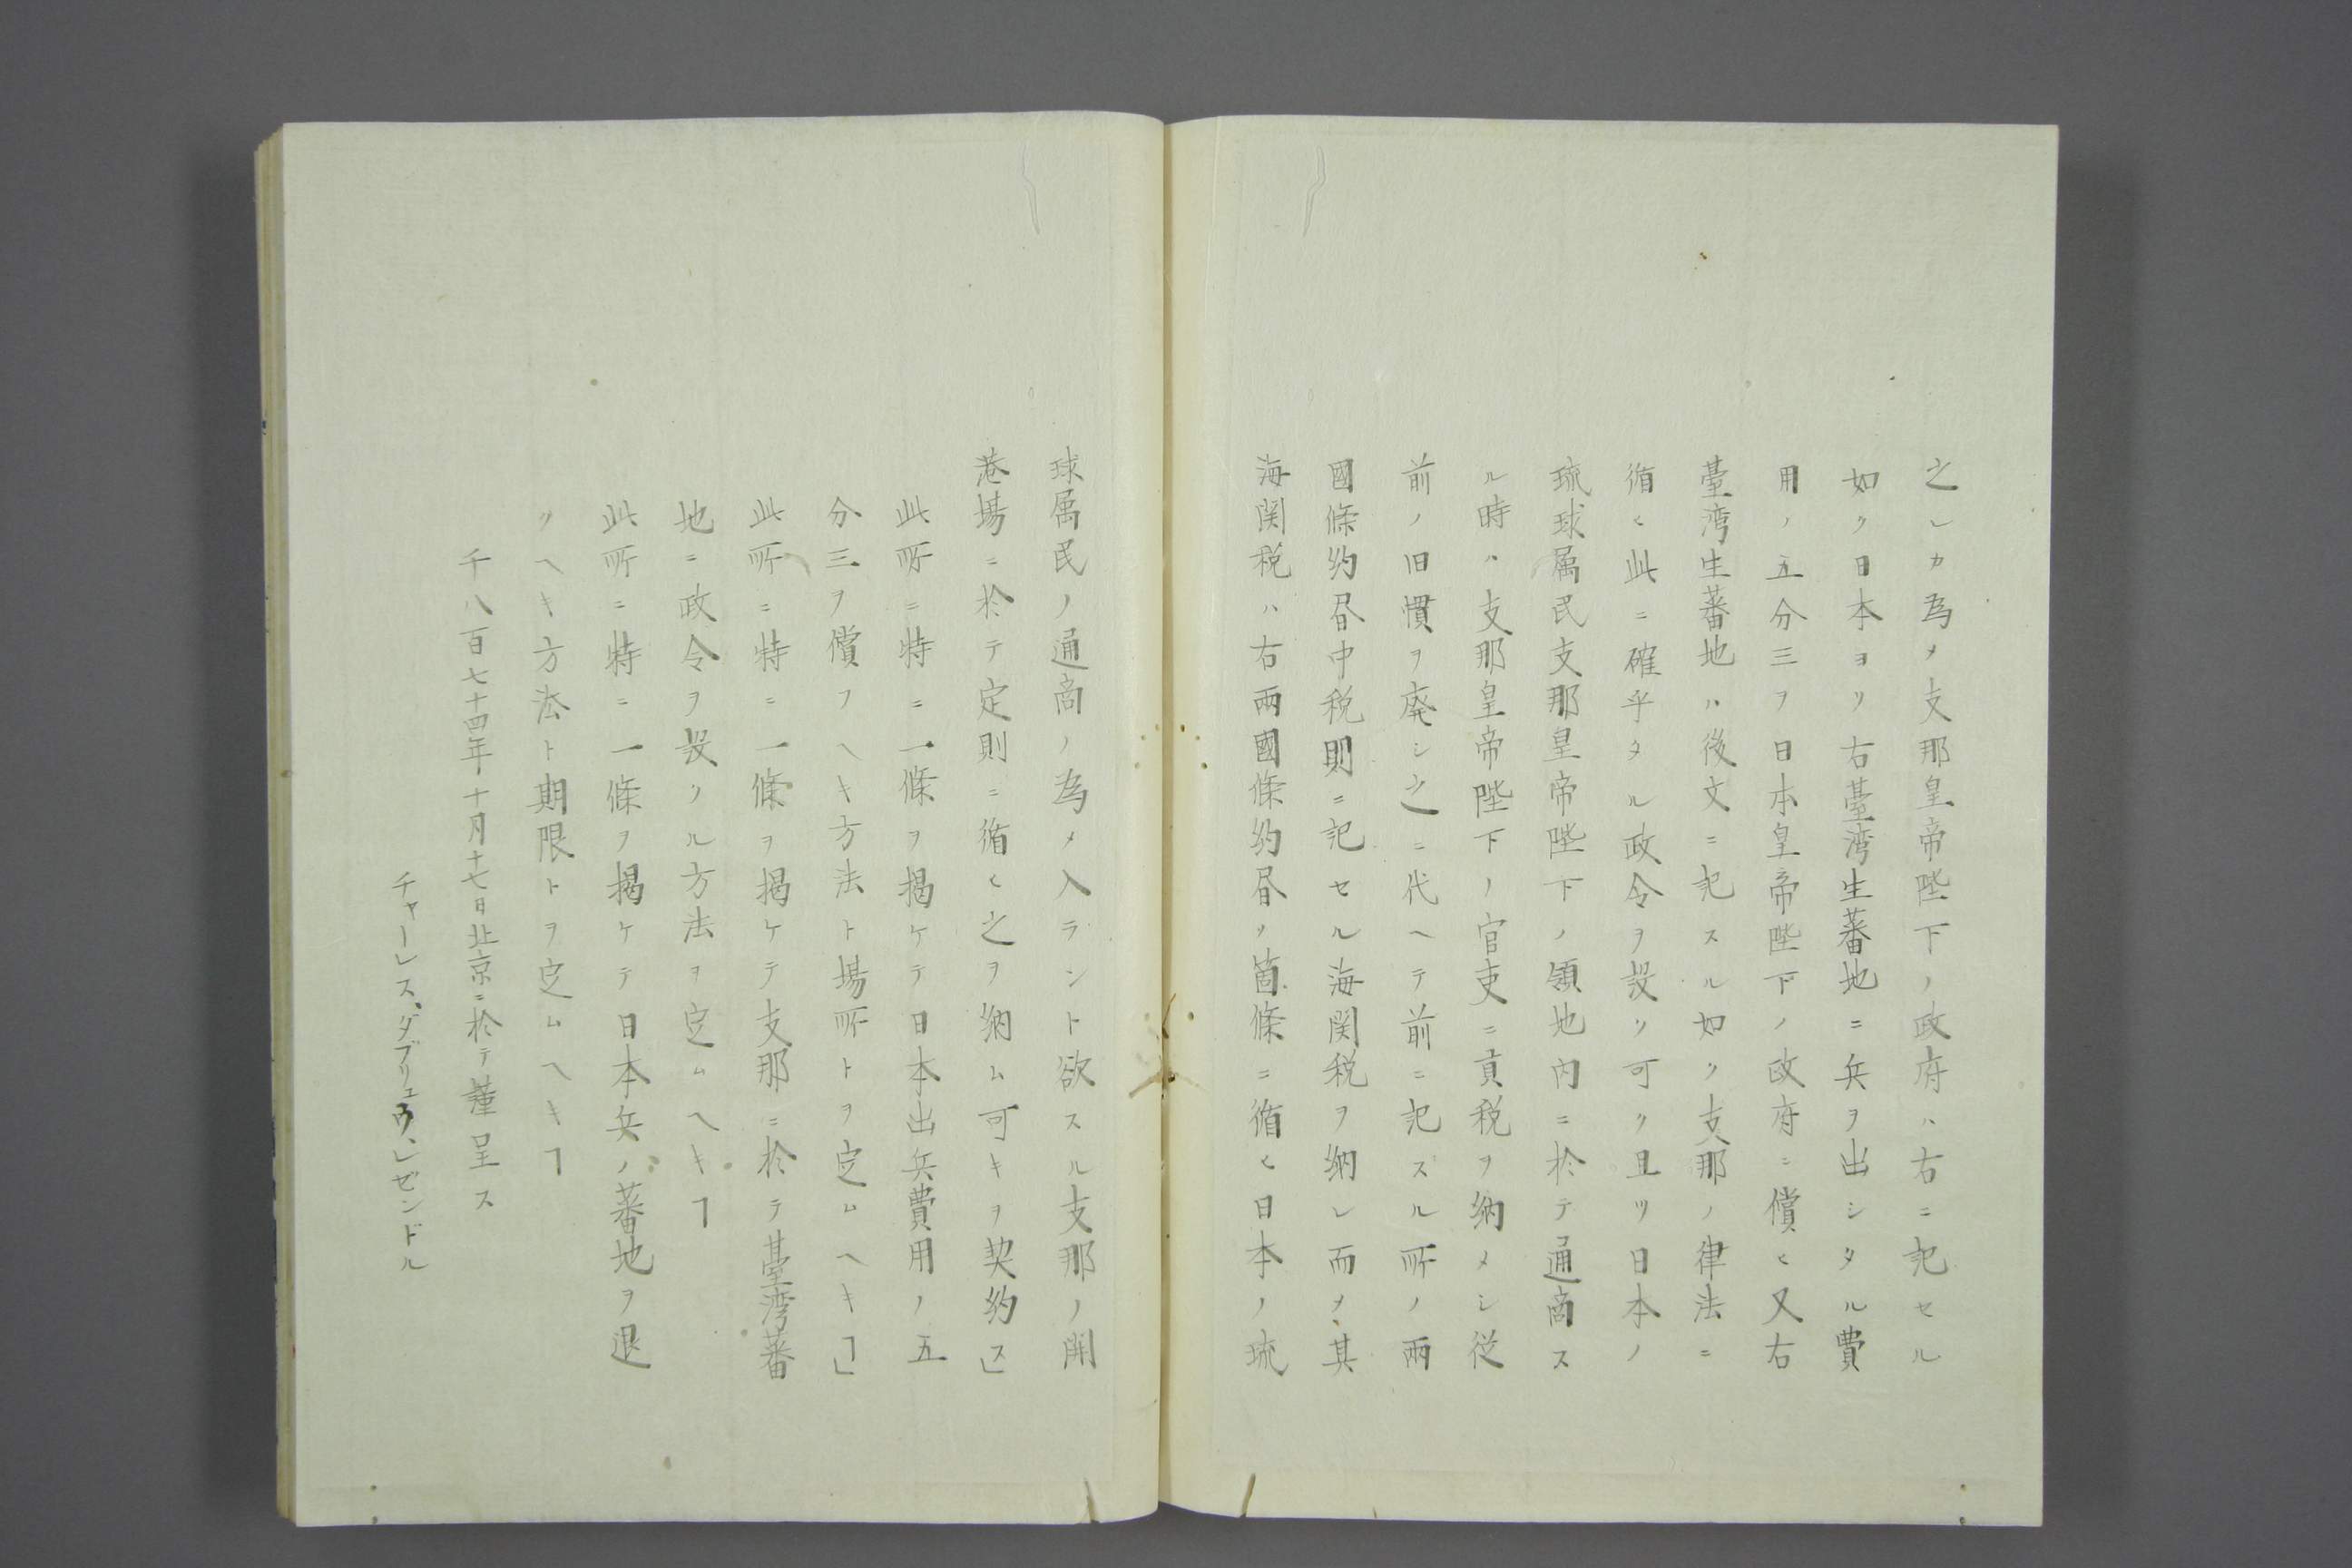 之レカ為メ支那皇帝陛下ノ政府ハ右ニ記セル
如ク日本ヨリ右臺湾生蕃地ニ兵ヲ出シタル費
用ノ五分三ヲ日本皇帝陛下ノ政府ニ償ヒ又右
臺湾生蕃地ハ後文ニ記スル如ク支那ノ律法ニ
循ヒ此ニ確乎タル政令ヲ設ク可ク且ツ日本ノ
琉球属民支那皇帝陛下ノ領地内ニ於テ通商ス
ル時ハ支那皇帝陛下ノ官吏ニ貢税ヲ納メシ従
前ノ旧慣ヲ廃シ之ニ代ヘテ前ニ記スル所ノ兩
國條約昼中税則ニ記セル海関税ヲ納レ而メ其
海関税ハ右兩國條約昼ノ箇條ニ循ヒ日本ノ琉
球属民ノ通商ノ為メ入ラント欲スル支那ノ開
港場ニ於テ定則ニ循ヒ之ヲ納ム可キヲ契約ス」
此所ニ特ニ一條ヲ掲ケテ日本出兵費用ノ五
分三ヲ償フヘキ方法ト場所トヲ定ムヘキヿ」
此所ニ特ニ一條ヲ掲ケテ支那ニ於テ臺湾蕃
地ニ政令ヲ設クル方法ヲ定ムヘキヿ
此所ニ特ニ一條ヲ掲ケテ日本兵ノ蕃地ヲ退
クヘキ方法ト期限トヲ定ムヘキヿ
千八百七十四年十月十七日北京ニ於テ謹呈ス
チャーレス、ダブリュウ、レゼンドル